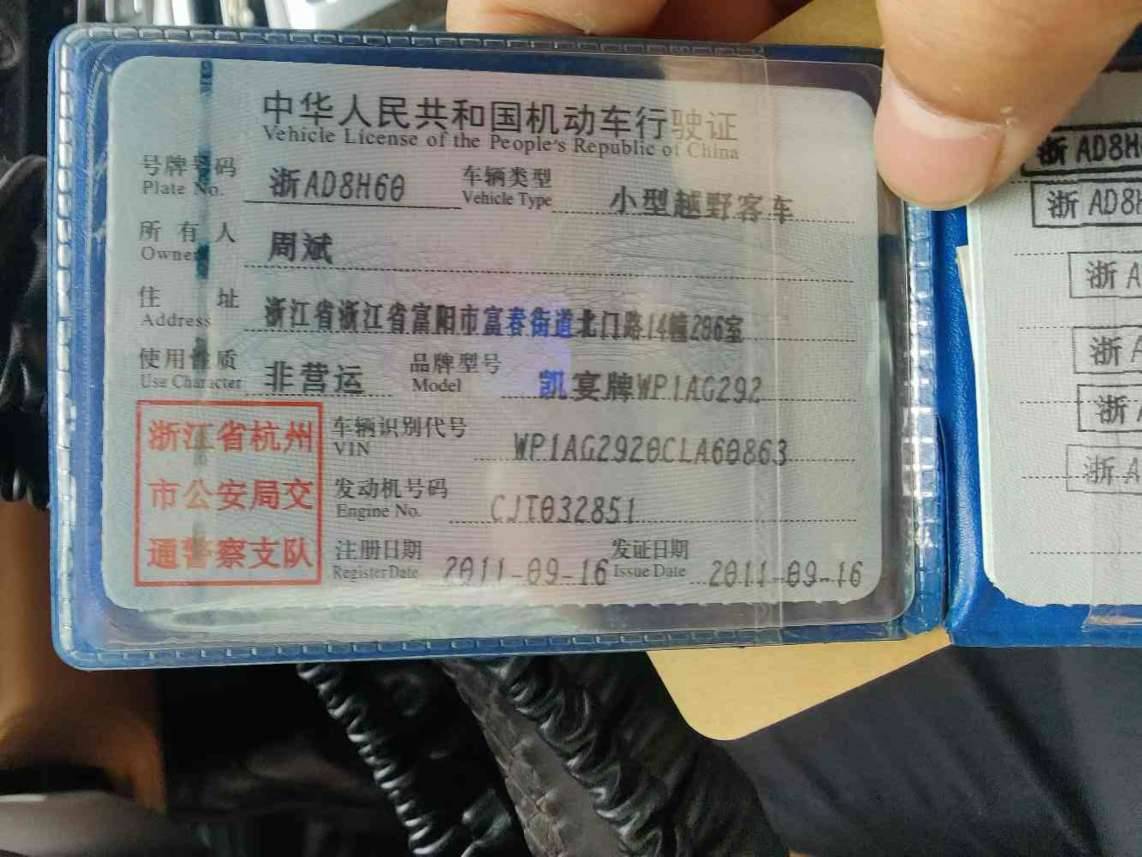 中华人民共和国机动车行驶证
Vehicle License of the People's Republic of China
号牌号码 浙AD8H60 车辆类型 小型越野客车
Plate No. Vehicle Type
所有人 周斌
Owner
住址 浙江省浙江省富阳市富春街道北门路14幢206室
Address
使用性质 非营运 品牌型号 凯宴牌WP1AG292
Use Character Model
浙江省杭州
市公安局交
通警察支队
车辆识别代号 WP1AG2920CLA60863
VIN
发动机号码 CJT032851
Engine No.
注册日期 2011-09-16 发证日期 2011-09-16
Register Date Issue Date
浙AD8H
浙AD8H
浙A
浙A
浙
浙A